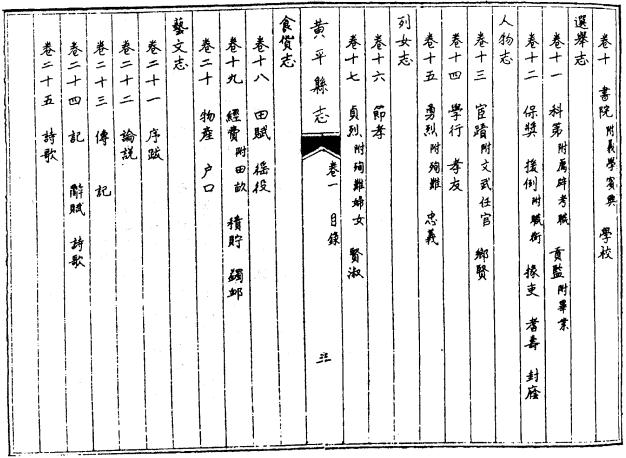 卷十 書院 附義學賓興 學校
選舉志
卷十一 科第 附薦辟考職 貢監 附畢業
卷十二 保獎 援例 附職銜 掾吏 耆壽 封廕
人物志
卷十三 宦蹟 附文武任官 鄉賢
卷十四 學行 孝友
卷十五 勇烈 附殉難 忠義
列女志
卷十六 節孝
卷十七 貞烈 附殉難婦女 賢淑
黃平縣志 卷一 目錄
食貨志
卷十八 田賦 徭役
卷十九 經費 附田畝 積貯 蠲卹
卷二十 物產 户口
藝文志
卷二十一 序跋
卷二十二 論說
卷二十三 傳 記
卷二十四 記 辭賦 詩歌
卷二十五 詩歌